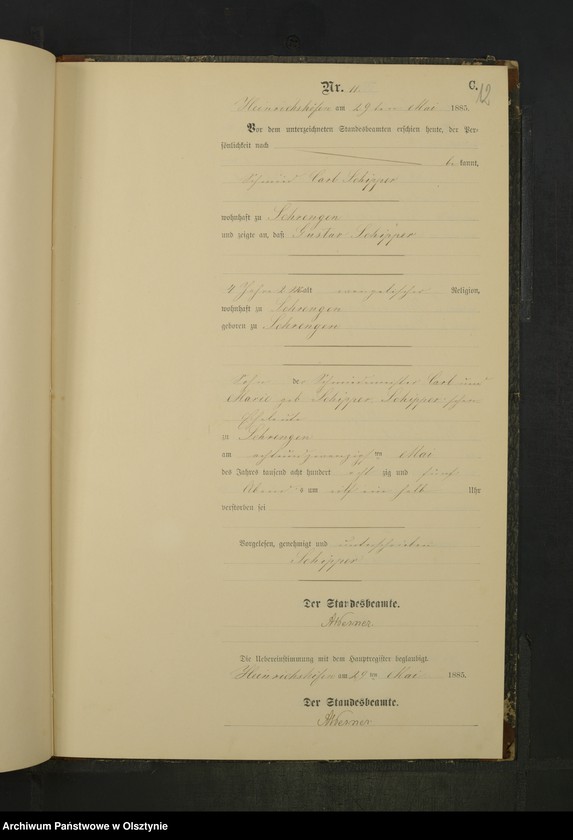 Nr. 11
C.
12
Heinrichshöfen am 29ten Mai 1885.
Vor dem unterzeichneten Standesbeamten erschien heute, der Per-
sönlichkeit nach
be kannt,
Schmied Carl Schipper
wohnhaft zu Sehrengen
und zeigte an, daß Gustav Schipper
4 Jahr alt evangelischer Religion,
wohnhaft zu Sehrengen
geboren zu Sehrengen
Sohn der Schmiedemeister Carl und
Marie geb Schipper Schipper-schen
Eheleute
zu Sehrengen
am achtundzwanzigsten Mai
des Jahres tausend acht hundert acht zig und fünf
Abend s um ein halb Uhr
verstorben sei
Vorgelesen, genehmigt und unterschrieben
Schipper
Der Standesbeamte.
AWerner
Die Uebereinstimmung mit dem Hauptregister beglaubigt.
Heinrichshöfen am 29ten Mai 1885.
Der Standesbeamte.
AWerner
Archiwum Państwowe w Olsztynie